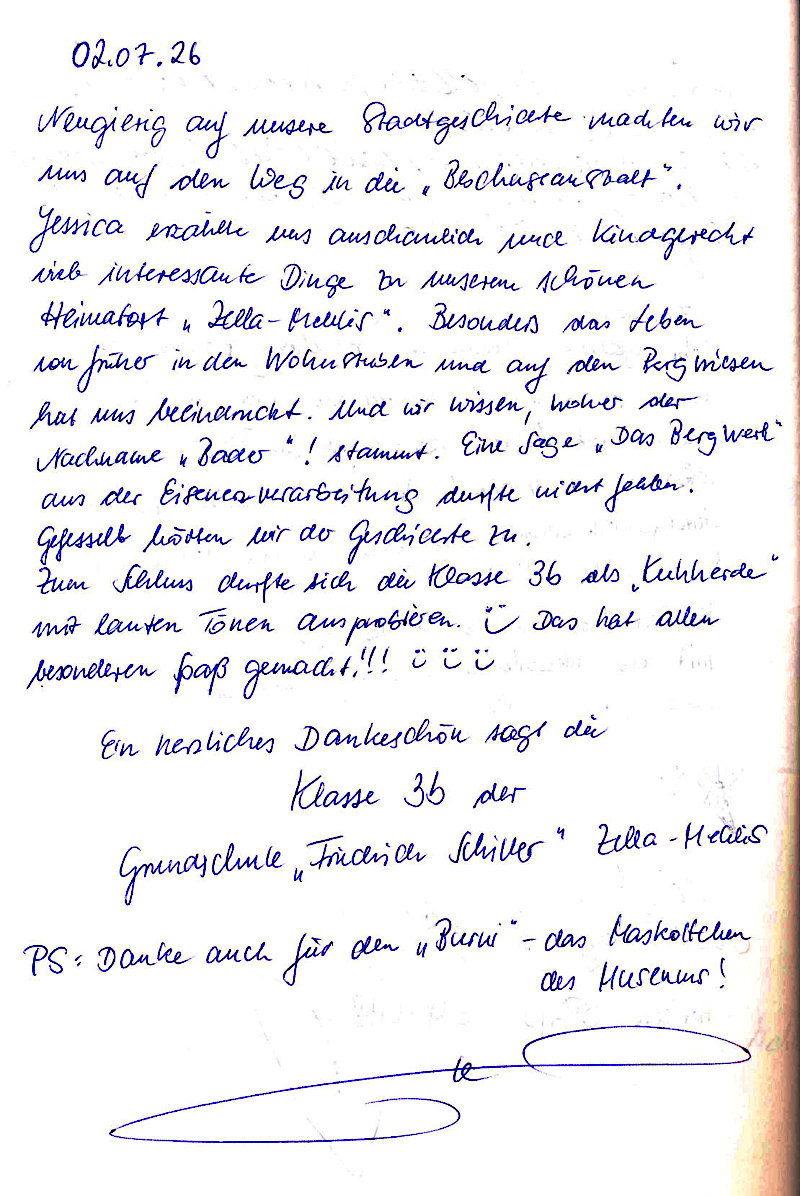 02.07.26
Neugierig auf unsere Stadtgeschichte machten wir
uns auf den Weg in die „Beschussanstalt“.
Jessica erzählte uns anschaulich und kindgerecht
viele interessante Dinge zu unserem schönen
Heimatort „Zella-Mehlis“. Besonders das Leben
von früher in den Wohnstuben und auf den Bergwiesen
hat uns beeindruckt. Und wir wissen, woher der
Nachname „Bader“! stammt. Eine Sage „Das Bergwerk“
aus der Eisenerzverarbeitung durfte nicht fehlen.
Gefesselt hörten wir der Geschichte zu.
Zum Schluss durfte sich die Klasse 3b als „Kuhherde“
mit lauten Tönen ausprobieren. Das hat allen
besonderen Spaß gemacht!!!
Ein herzliches Dankeschön sagt die
Klasse 3b der
Grundschule „Friedrich Schiller“ Zella-Mehlis
PS: Danke auch für den – das Maskottchen
des Museums!